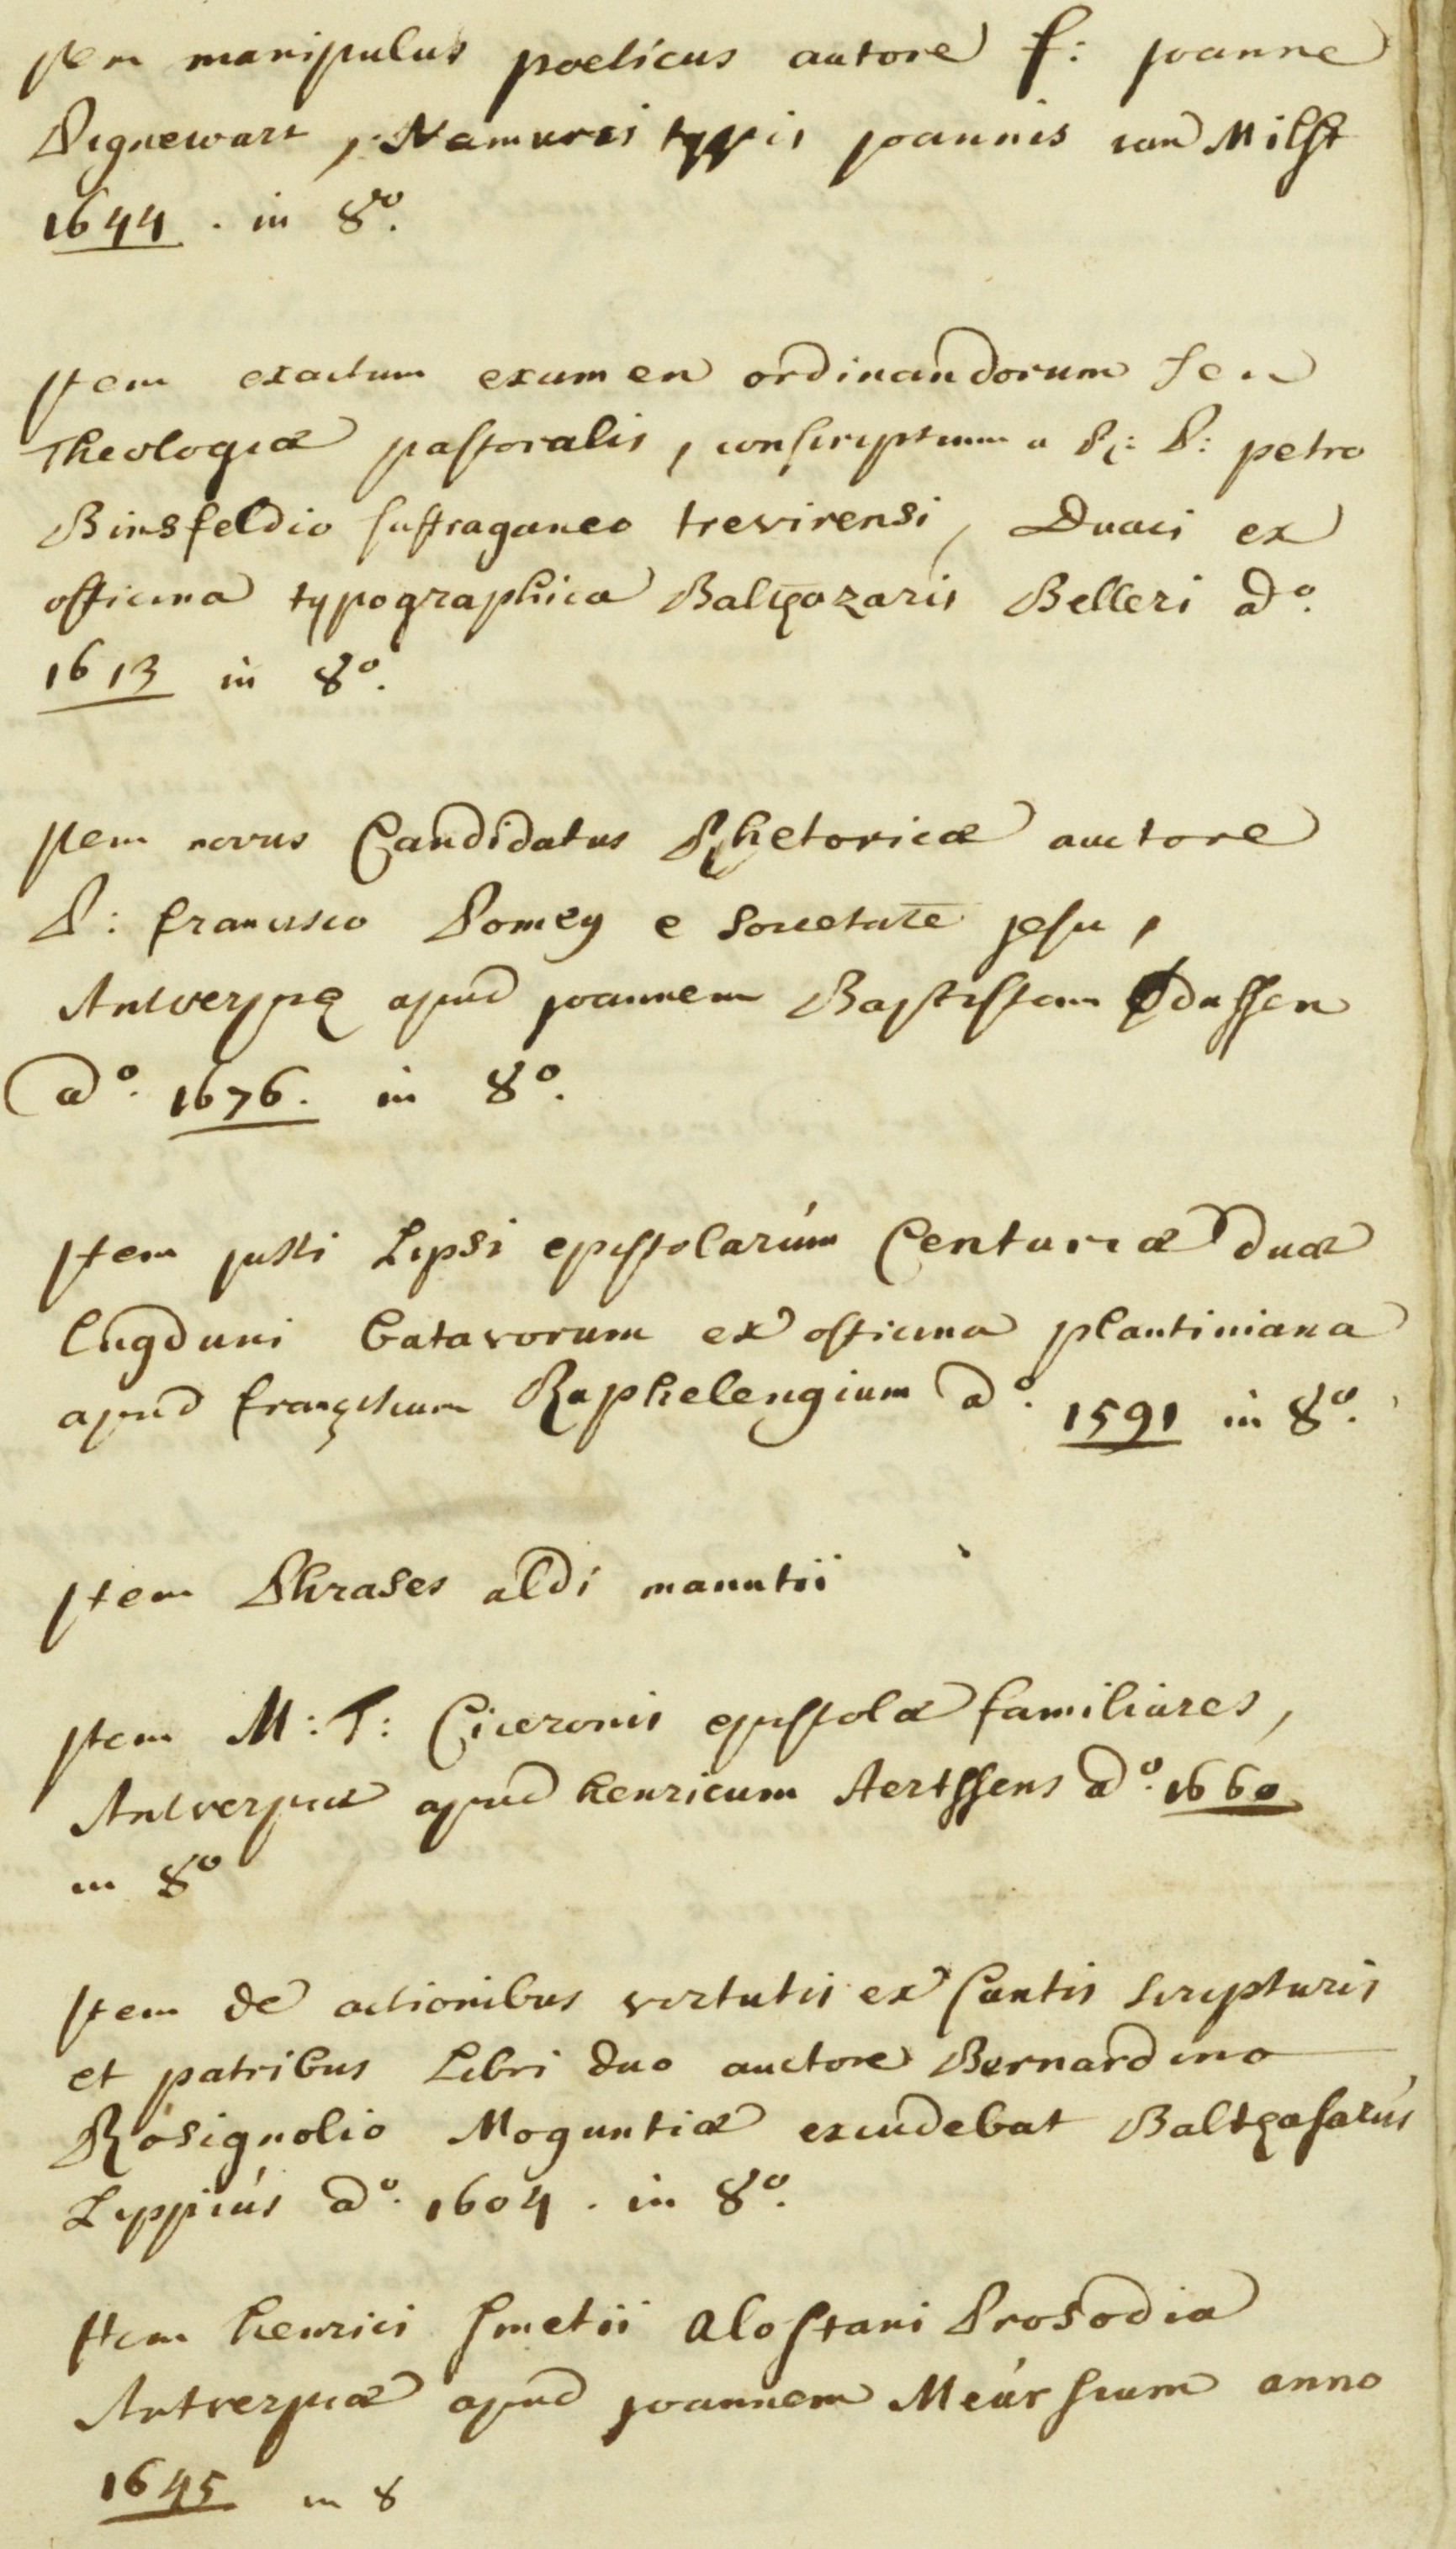 Item manipulus poeticus autore f: joanne
Pignewart, Namurci typis joannis van Milst
1644 . in 8º.
Item exactum examen ordinandorum seu
Theologiæ pastoralis, conscriptum a R: P: petro
Binsfeldio suffraganeo trevirensi, Duaci ex
officina typographica Baltazaris Belleri aº.
1613 in 8º.
Item novus Candidatus Rhetoricæ auctore
P: francisco Pomey e Societate jesu,
Antverpię apud joannem Baptistam dussen
aº. 1676. in 8º.
Item justi Lipsi epistolarum Centuriæ duæ
lugduni batavorum ex officina plantiniana
apud franciscum Raphelengium aº. 1591 in 8º.
Item Phrases aldi manutii
Item M: T: Ciceronis epistolæ familiares,
Antverpiæ apud henricum Aertssens aº. 1660
in 8º
Item de actionibus virtutis ex Santis scripturis
et patribus Libri duo auctore Bernardino
Rosignolio Moguntiæ excudebat Baltzasarus
Lippius aº. 1604 . in 8º.
Item henrici smetii alostani Prosodia
Antverpiæ apud joannem Meursium anno
1645 in 8